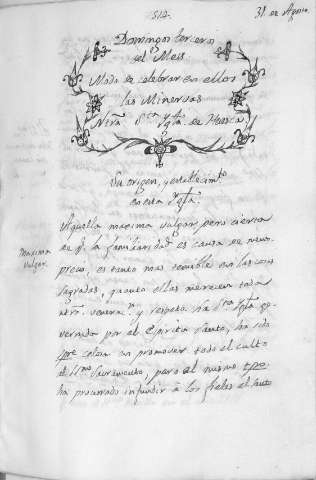 512.
31 de Agosto.
Domingos terceros
del Mes
Modo de celebrar en ellos
las Minervas
Ntra. Sta. Ygla. de Huesca
Su origen, y establecimto.
en esta Ygla.
Maxima vulgar.
Aquella maxima vulgar, pero cierta
de q. la familiaridad es causa de menos
precio, es tanto mas temible en las cosas
sagradas, quanto ellas merecen toda
ntra. veneran. y respeto. La Sta. Ygla. go
vernada por el Espiritu Santo, ha sido
spre. celosa en promover todo el culto
del Ssmo. Sacramento, pero al mismo tpo.
ha procurado infundir à los fieles el santo